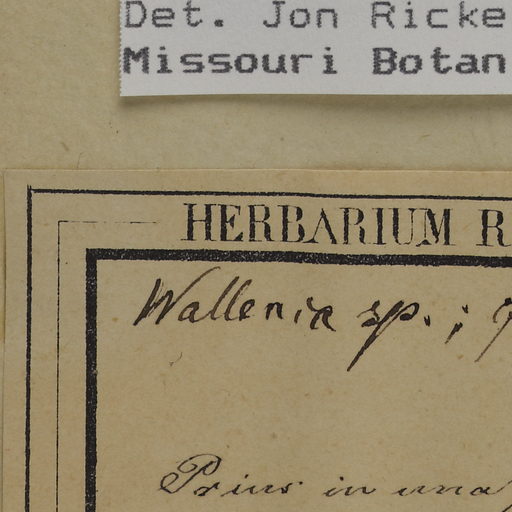 Det. Jon Ricke
Missouri Botan
HERBARIUM R
Wallenia sp. ;
Prius in una